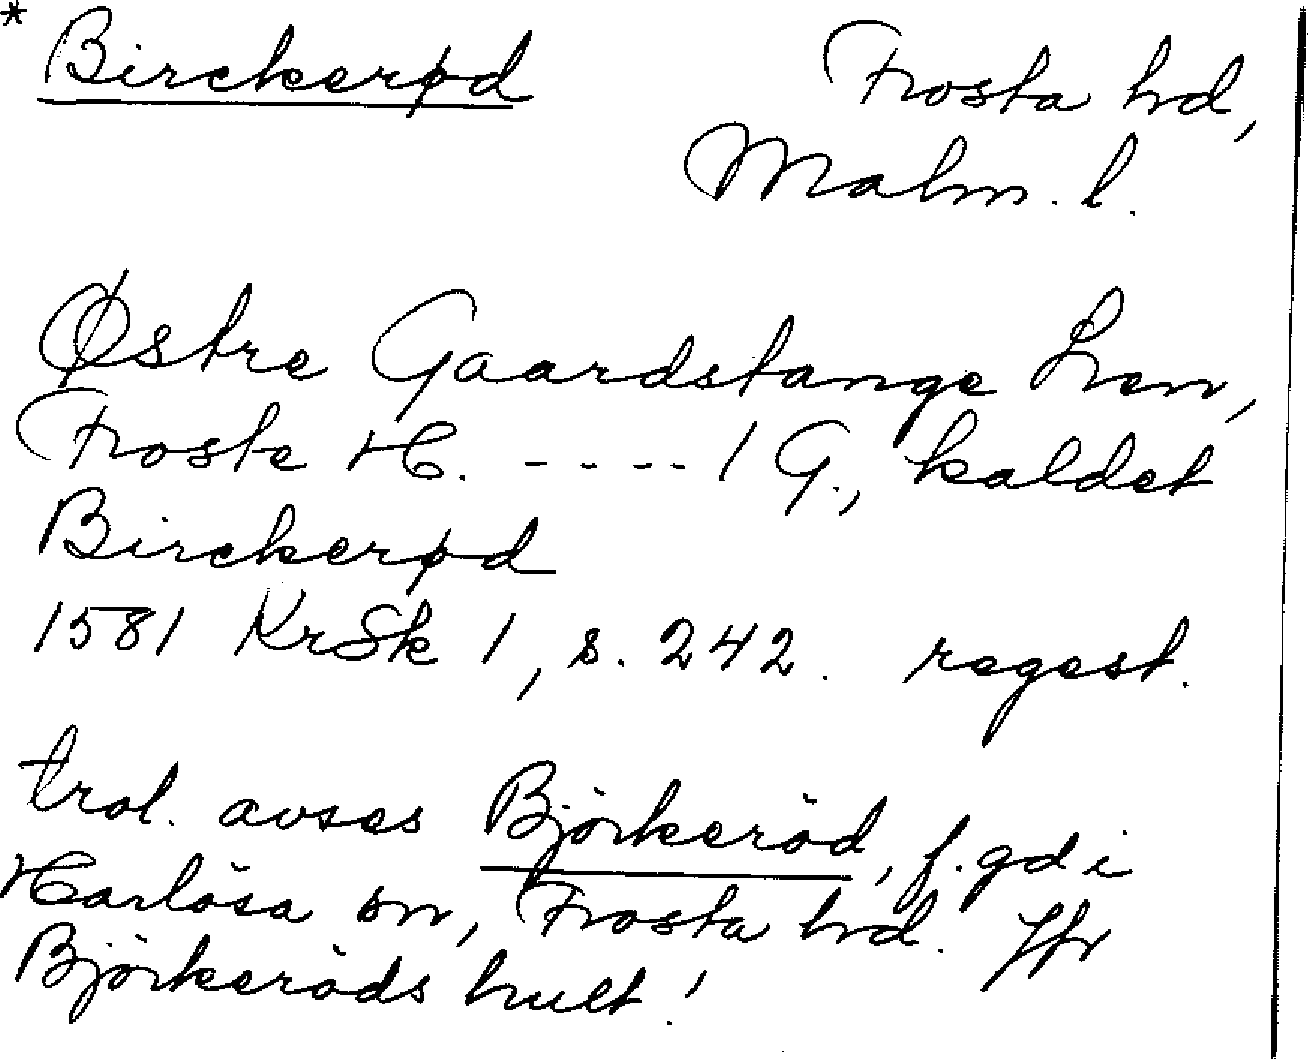 * Birckerød
Frosta hd,
Malm. l.
Østre Gaardstange Len,
Froste H. ---- 1 G., kaldet
Birckerød
1581 KrSk 1, s. 242. regest.
trol. avses Björkeröd, f. gd i
Harlösa sn, Frosta hd. Jfr
Björkeröds hult!